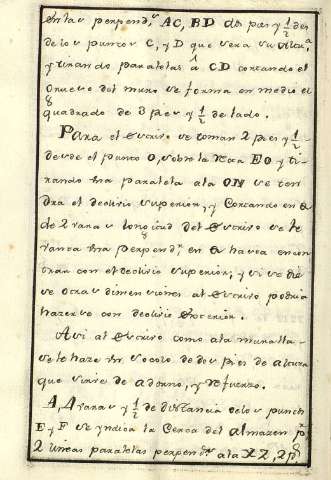 en las perpend.s AC, BD dos pies y 1/2 des
de los puntos C, y D que sera su altura
y tirando paralelas á CD cortando el
Grueso del muro se forma en medio el
quadrado de 3 pies y 1/2 de lado.
Para el Estrivo se toman 2 pies y 1/2
desde el punto O, sobre la recta EO y ti-
rando una paralela a la ON se ten
dra el declivio superior, y Cortando en
de 2 varas longitud del Estrivo se le
vanta una perpend.r en hasta encon
trar con el declivio superior, y si se die
se otras dimensiones al Estrivo podria
hazerse con declivio Exterior.
Asi al Estrivo como ala muralla
se le haze un Socolo de dos pies de altura
que sirve de adorno, y Refuerzo.
A, 4 varas y 1/2 de distancia delos puntos
E y F se yndica la Cerca del Almazen p.r
2 lineas paralelas perpend.s ala XZ, 2 p.s